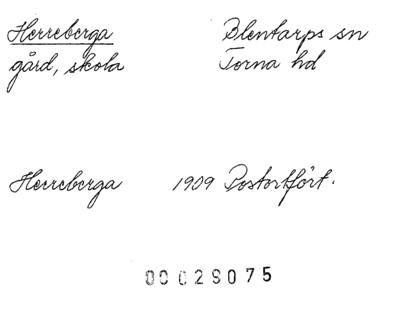 Herreberga Blentarps sn
gård, skola Torna hd
Herreberga 1909 Postortfört.
00029075